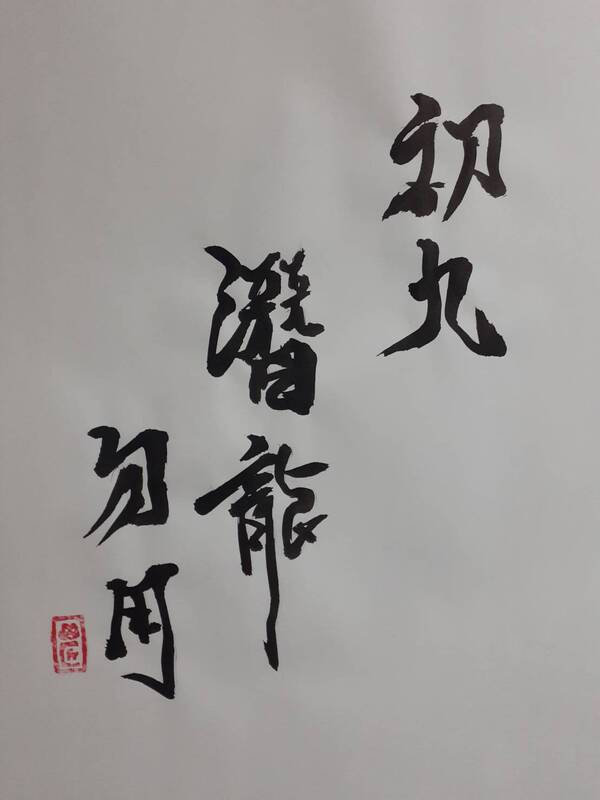 初九
潛龍
勿用